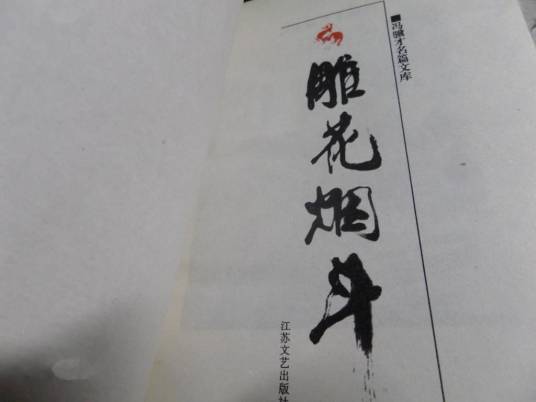 冯骥才名篇文库
雕花烟斗
江苏文艺出版社